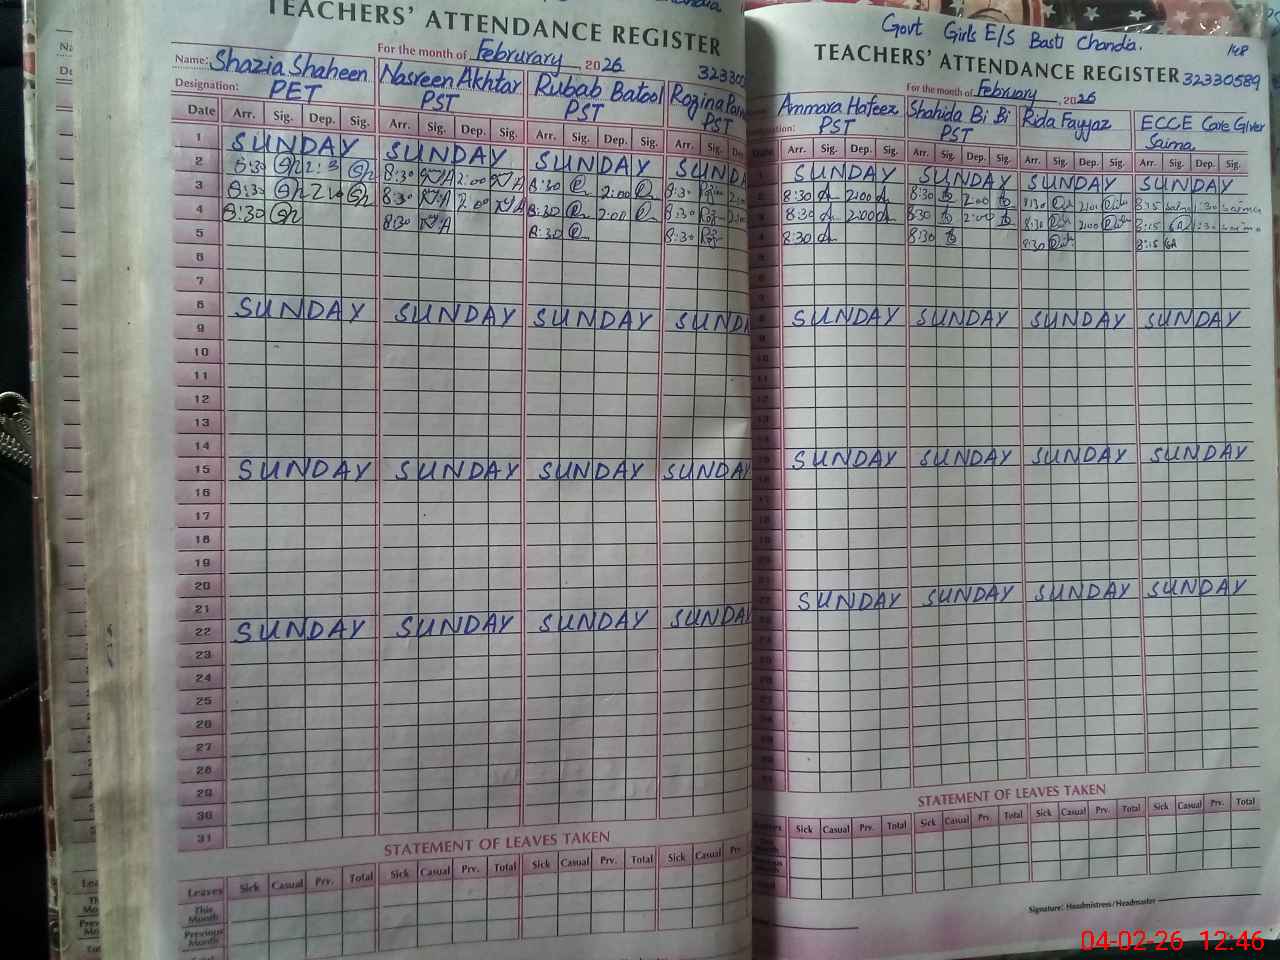 TEACHERS' ATTENDANCE REGISTER
For the month of Februrary 2026
Name: Shazia Shaheen Nasreen Akhtar Rubab Batool Rozina
Designation: PET PST PST PST
Date Arr. Sig. Dep. Sig. Arr. Sig. Dep. Sig. Arr. Sig. Dep. Sig. Arr. Sig.
1 SUNDAY SUNDAY SUNDAY SUNDAY
2 8:30 8:30 N/A 2:00 N/A 8:30 2:00 8:30
3 8:30 8:30 N/A 2:00 N/A 8:30 2:00 8:30
4 8:30 8:30 N/A 8:30 8:30
5
6
7
8 SUNDAY SUNDAY SUNDAY SUNDAY
9
10
11
12
13
14
15 SUNDAY SUNDAY SUNDAY SUNDAY
16
17
18
19
20
21
22 SUNDAY SUNDAY SUNDAY SUNDAY
23
24
25
26
27
28
29
30
31
STATEMENT OF LEAVES TAKEN
Leaves Sick Casual Prv. Total Sick Casual Prv. Total Sick Casual Prv. Total Sick Casual Prv.
This Month
Previous Month
Govt Girls E/S Basti Chandia. 148
TEACHERS' ATTENDANCE REGISTER 32330589
For the month of February, 2026
Ammara Hafeez Shahida Bi Bi Rida Fayyaz ECCE Care Giver
PST PST Saima
Arr. Sig. Dep. Sig. Arr. Sig. Dep. Sig. Arr. Sig. Dep. Sig. Arr. Sig. Dep. Sig.
SUNDAY SUNDAY SUNDAY SUNDAY
8:30 2:00 8:30 2:00 8:30 2:00 8:15 Saima 1:30 Saima
8:30 2:00 8:30 2:00 8:30 2:00 8:15 SA 1:30 Saima
8:30 8:30 8:30 8:15 SA
SUNDAY SUNDAY SUNDAY SUNDAY
SUNDAY SUNDAY SUNDAY SUNDAY
SUNDAY SUNDAY SUNDAY SUNDAY
STATEMENT OF LEAVES TAKEN
Sick Casual Prv. Total Sick Casual Prv. Total Sick Casual Prv. Total Sick Casual Prv. Total
Signature: Headmistress/Headmaster
04-02-26 12:46